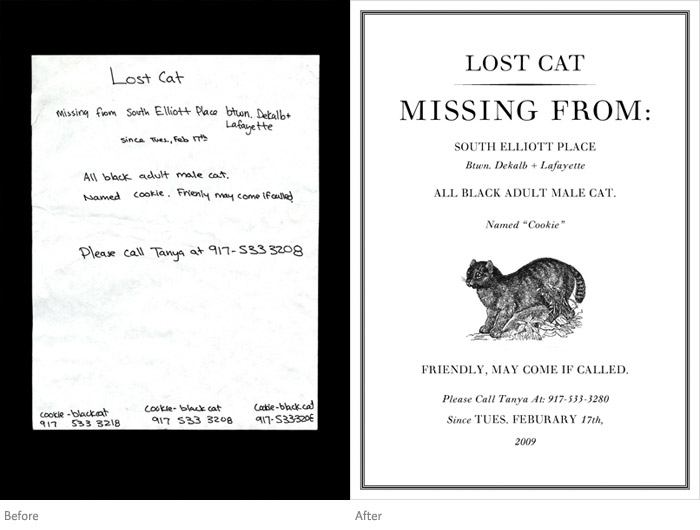 Lost Cat
missing from South Elliott Place btwn. Dekalb +
Lafayette
since Tues, Feb 17th
All black adult male cat.
Named cookie. Frienly may come if called
Please call Tanya at 917-533 3208
cookie-blackcat
917 533 3218
cookie-black cat
917 533 3208
Cookie-black cat
917-5333208
LOST CAT
MISSING FROM:
SOUTH ELLIOTT PLACE
Btwn. Dekalb + Lafayette
ALL BLACK ADULT MALE CAT.
Named “Cookie”
FRIENDLY, MAY COME IF CALLED.
Please Call Tanya At: 917-533-3280
Since TUES. FEBURARY 17th,
2009
Before
After